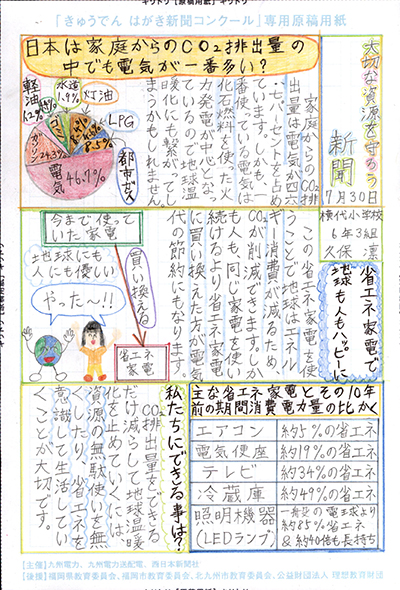 キリトリ【原稿用紙】キリトリ
「きゅうでん はがき新聞コンクール」専用原稿用紙
大切な資源を守ろう
新聞
7月30日
横代小学校
6年3組
久保 凛
日本は家庭からのCO₂排出量の
中でも電気が一番多い?
軽油
水道
1.9%
灯油
LPG
都市ガス
8.5%
ガソリン
24.3%
電気
46.7%
家庭からのCO₂排
出量は電気が四六
・七パーセントを占め
ています。しかも、一
番使っている電気は
化石燃料を使った火
力発電が中心となっ
ているので地球温
暖化にも繋がってし
まうかもしれません。
省エネ家電で
地球も人もハッピーに
この省エネ家電を使
うことで地球はエネル
ギー消費が減るため、
CO₂が削減できます。か
も人も、同じ家電を使い
続けるより省エネ家電
に買い換えた方が電気
代の節約にもなります。
今まで使って
いた家電
買い換える
省エネ
家電
地球にも
人にも優しい
やった〜!!
主な省エネ家電とその10年
前の期間消費電力量の比かく
エアコン 約5%の省エネ
電気便座 約19%の省エネ
テレビ 約34%の省エネ
冷蔵庫 約49%の省エネ
照明機器
(LEDランプ)
一般の電球より
約85%省エネ
&約40倍も長持ち
私たちにできる事は?
CO₂排出量をできる
だけ減らして地球温暖
化を止めていくには、
資源の無駄使いを無
くしたり、省エネを
意識して生活してい
くことが大切です。
【主催】九州電力、九州電力送配電、西日本新聞社
【後援】福岡県教育委員会、福岡市教育委員会、北九州市教育委員会、公益財団法人 理想教育財団